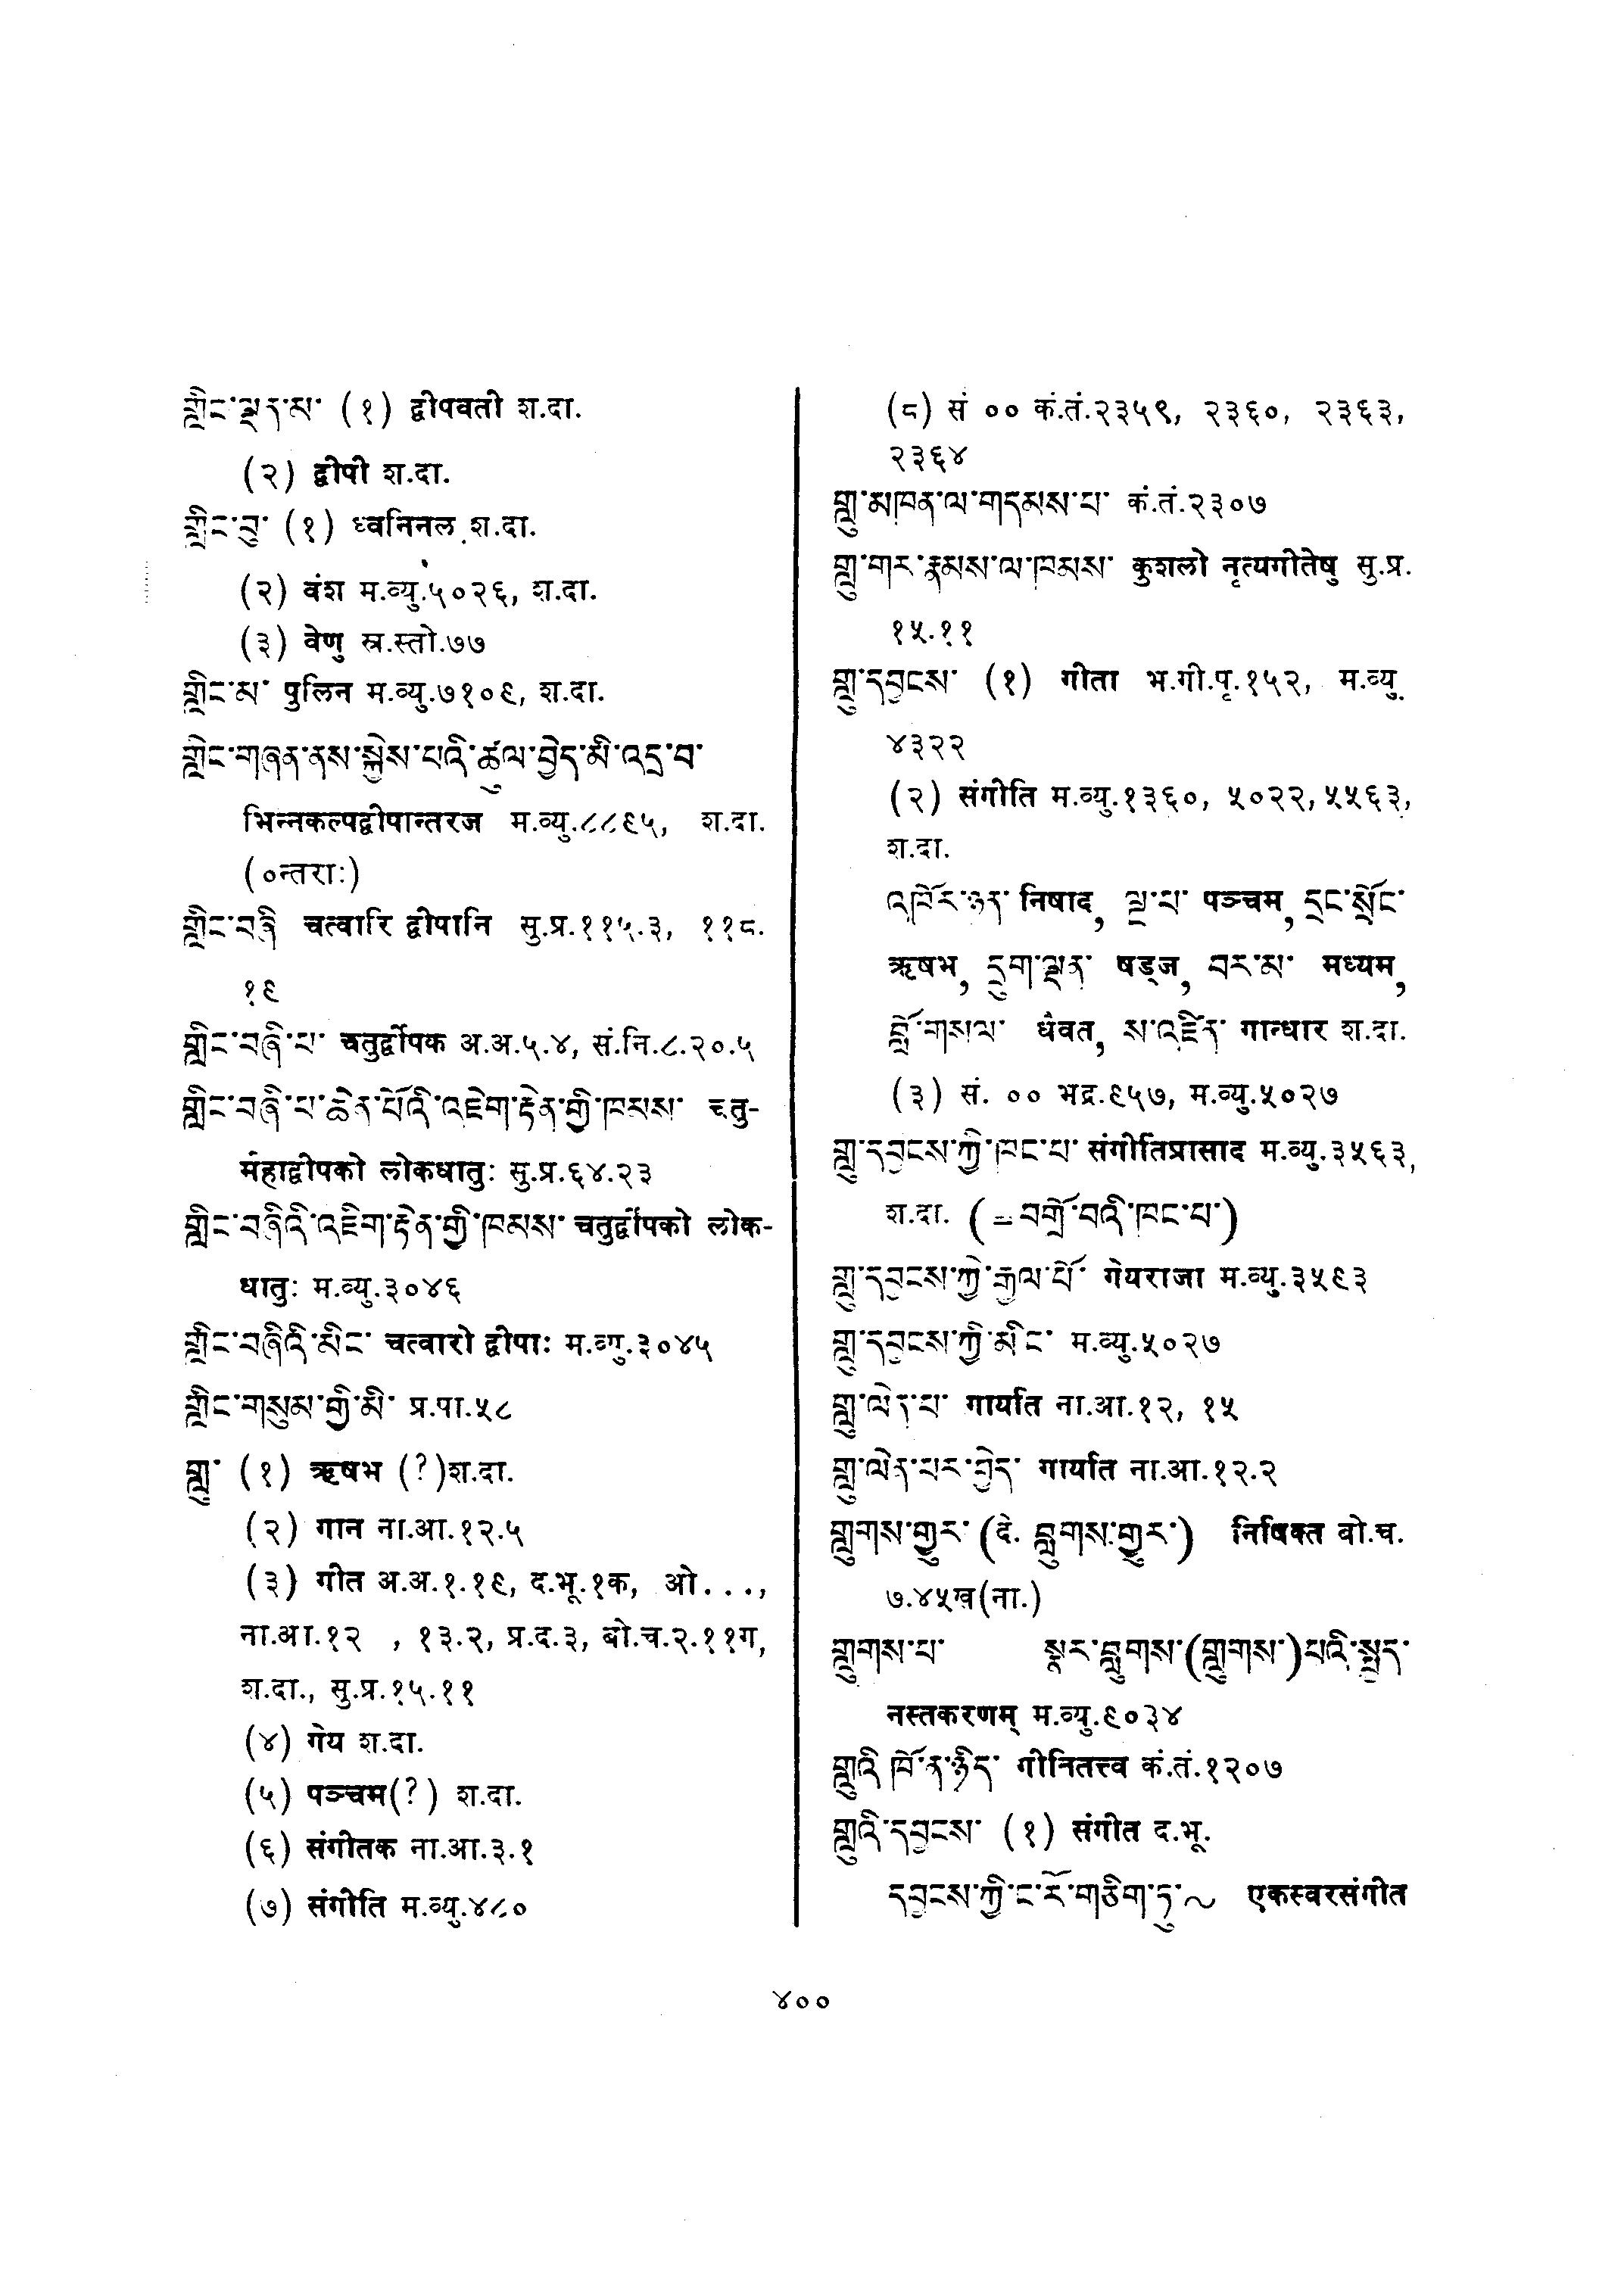 གླིང་ལྡན་མ་ (१) द्वीपवती श.दा.
(२) द्वीपी श.दा.
གླིང་བུ་ (१) ध्वनिनल श.दा.
(२) वंश म.व्यु.५०२६, श.दा.
(३) वेणु स्र.स्तो.७७
གླིང་མ་ पुलिन म.व्यु.७१०९, श.दा.
གླིང་གཞན་ནས་སྐྱེས་པའི་ཚུལ་བྱེད་མི་འདྲ་བ་
भिन्नकल्पद्वीपान्तरज म.व्यु.८८९५, श.दा.
(०न्तराः)
གླིང་བཞི चत्वारि द्वीपानि सु.प्र.११५.३, ११८.
१९
གླིང་བཞི་པ་ चतुर्द्वीपक अ.अ.५.४, सं.नि.८.२०.५
གླིང་བཞི་པ་ཆེན་པོའི་འཇིག་རྟེན་གྱི་ཁམས་ चतु-
र्महाद्वीपको लोकधातुः सु.प्र.६४.२३
གླིང་བཞིའི་འཇིག་རྟེན་གྱི་ཁམས་ चतुर्द्वीपको लोक-
धातुः म.व्यु.३०४६
གླིང་བཞིའི་མིང་ चत्वारो द्वीपाः म.व्यु.३०४५
གླིང་གསུམ་གྱི་མི་ प्र.पा.५८
གླུ་ (१) ऋषभ (?)श.दा.
(२) गान ना.आ.१२.५
(३) गीत अ.अ.१.१९, द.भू.१क, ओ...,
ना.आ.१२ , १३.२, प्र.द.३, बो.च.२.११ग,
श.दा., सु.प्र.१५.११
(४) गेय श.दा.
(५) पञ्चम(?) श.दा.
(६) संगीतक ना.आ.३.१
(७) संगीति म.व्यु.४८०
(८) सं ०० कं.तं.२३५९, २३६०, २३६३,
२३६४
གླུ་མཁན་ལ་གདམས་པ་ कं.तं.२३०७
གླུ་གར་རྣམས་ལ་ཁམས་ कुशलो नृत्यगीतेषु सु.प्र.
१५.११
གླུ་དབྱངས་ (१) गीता भ.गी.पृ.१५२, म.व्यु.
४३२२
(२) संगीति म.व्यु.१३६०, ५०२२, ५५६३,
श.दा.
འཁོར་ཉན་ निषाद, ལྔ་པ་ पञ्चम, དྲང་སྲོང་
ऋषभ, དྲུག་ལྡན་ षड्ज, བར་མ་ मध्यम,
བློ་གསལ་ धैवत, ས་འཛིན་ गान्धार श.दा.
(३) सं. ०० भद्र.९५७, म.व्यु.५०२७
གླུ་དབྱངས་ཀྱི་ཁང་པ་ संगीतिप्रासाद म.व्यु.३५६३,
श.दा. (=བགྲོ་བའི་ཁང་པ་)
གླུ་དབྱངས་ཀྱི་རྒྱལ་པོ་ गेयराजा म.व्यु.३५९३
གླུ་དབྱངས་ཀྱི་མིང་ म.व्यु.५०२७
གླུ་ལེན་པ་ गायति ना.आ.१२, १५
གླུ་ལེན་པར་བྱེད་ गायति ना.आ.१२.२
གླུགས་གྱུར་ (दे. བླུགས་གྱུར་) निषिक्त बो.च.
७.४५ख(ना.)
གླུགས་པ་ སྣར་བླུགས་(གླུགས་)པའི་སྤྱད་
नस्तकरणम् म.व्यु.९०३४
གླུའི་ཁོ་ན་ཉིད་ गीनितत्त्व कं.तं.१२०७
གླུའི་དབྱངས་ (१) संगीत द.भू.
དབྱངས་ཀྱི་ང་རོ་གཅིག་ཏུ་~ एकस्वरसंगीत
४००